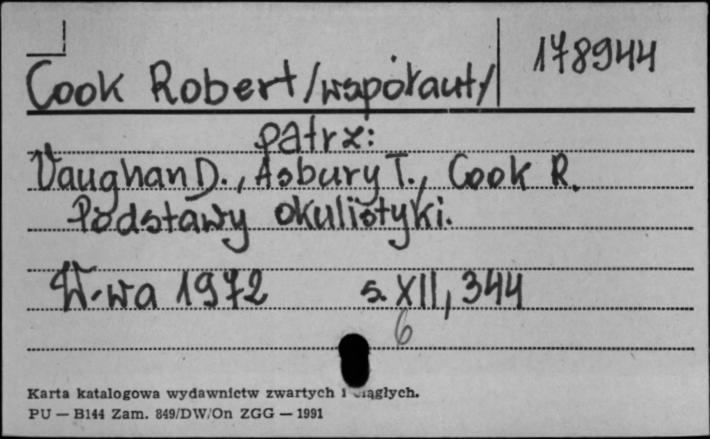 178944
Cook Robert /współaut/
patrz:
Vaughan D., Asbury T., Cook R.
Podstawy okulistyki.
W-wa 1972 s. XII, 344
6
Karta katalogowa wydawnictw zwartych i ciągłych.
PU — B144 Zam. 849/DW/On ZGG — 1991